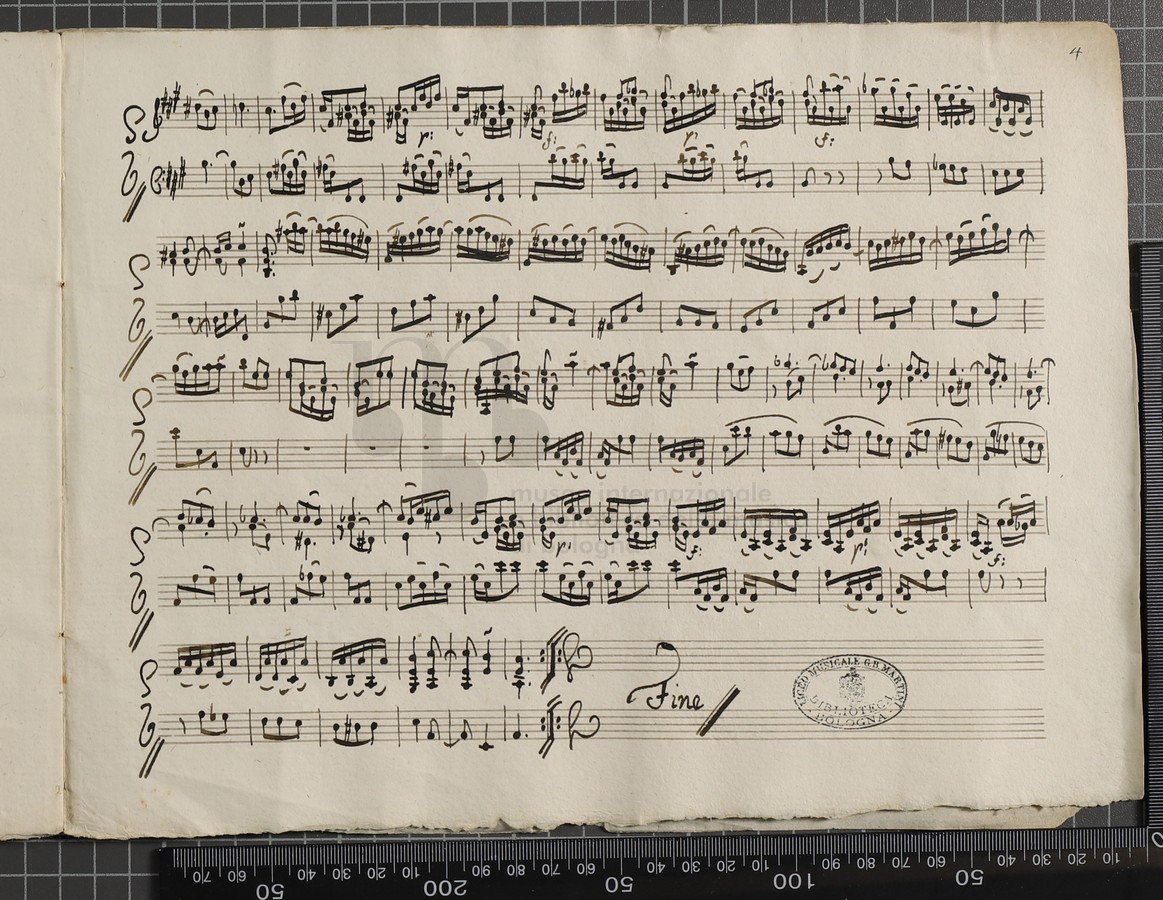 4
p: f: p: f:
museo internazionale
bologna
p: f: p: f:
Fine
LICEO MUSICALE G.B. MARTINI
BIBLIOTECA
BOLOGNA
70 60 50 40 30 20 10 200 90 80 70 60 50 40 30 20 10 100 90 80 70 60 50 40 30 20 10